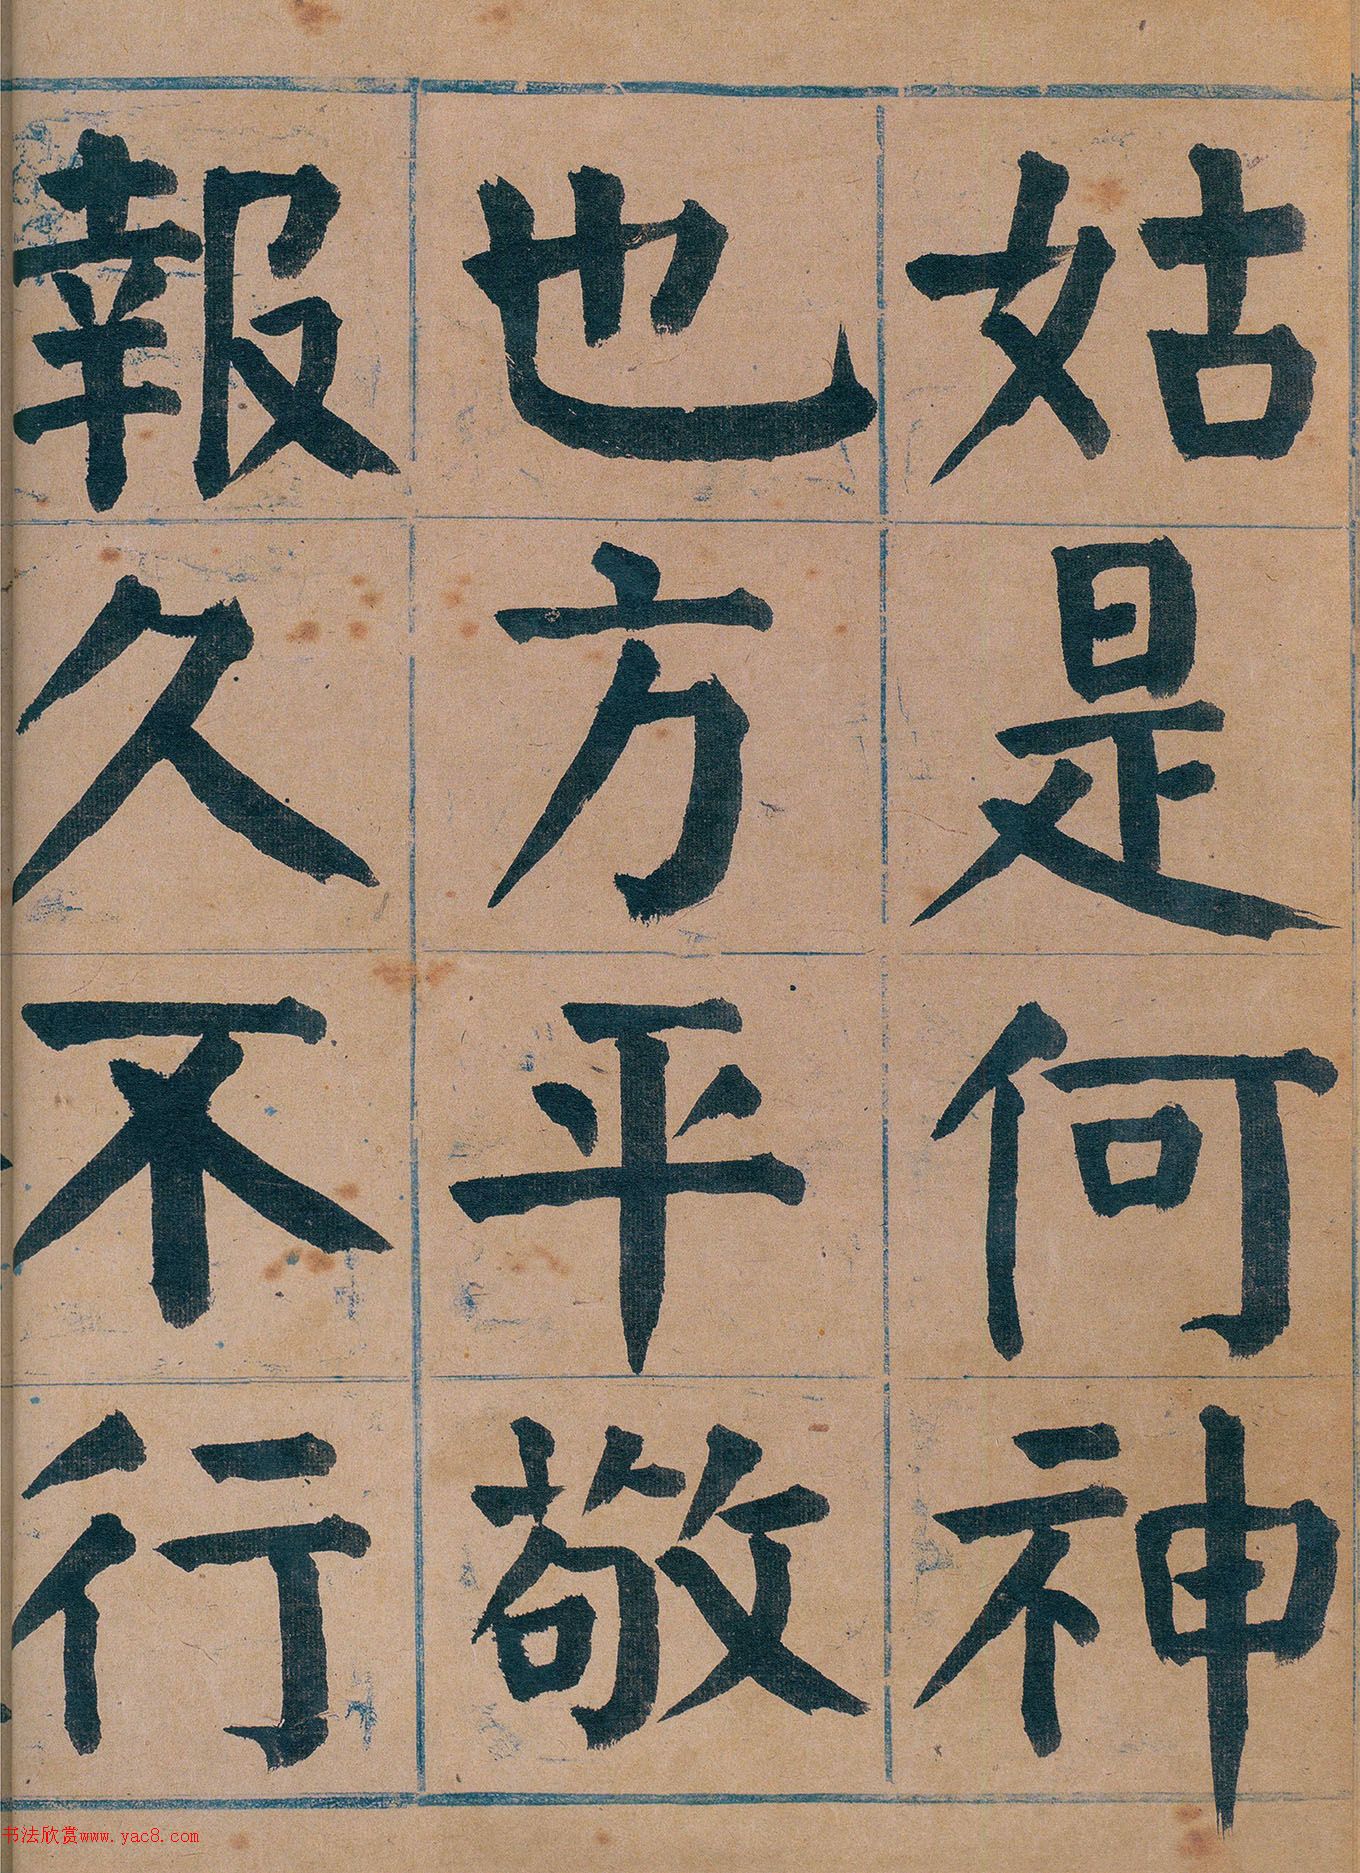 姑是何神
也方平敬
報久不行
书法欣赏www.yac8.com